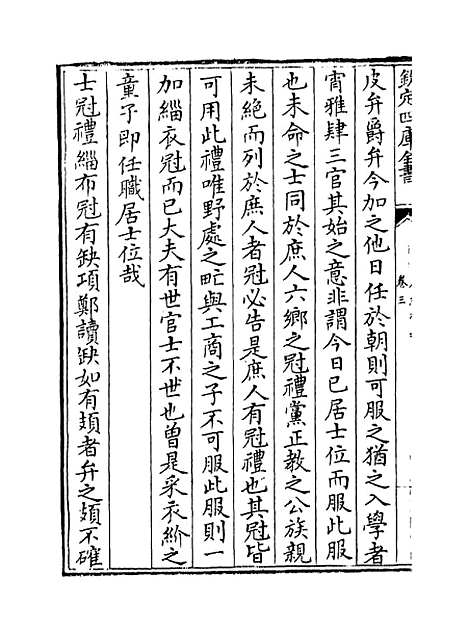 欽定四庫全書
卷三
皮弁爵弁今加之他日任於朝則可服之猶之入學者
宵雅肆三官其始之意非謂今日已居士位而服此服
也未命之士同於庶人六鄉之冠禮黨正教之公族親
未絶而列於庶人者冠必告是庶人有冠禮也其冠皆
可用此禮唯野處之甿與工商之子不可服此服則一
加緇衣冠而已大夫有世官士不世也曽是采衣紒之
童子即任職居士位哉
士冠禮緇布冠有缺項鄭讀缺如有頍者弁之頍不確